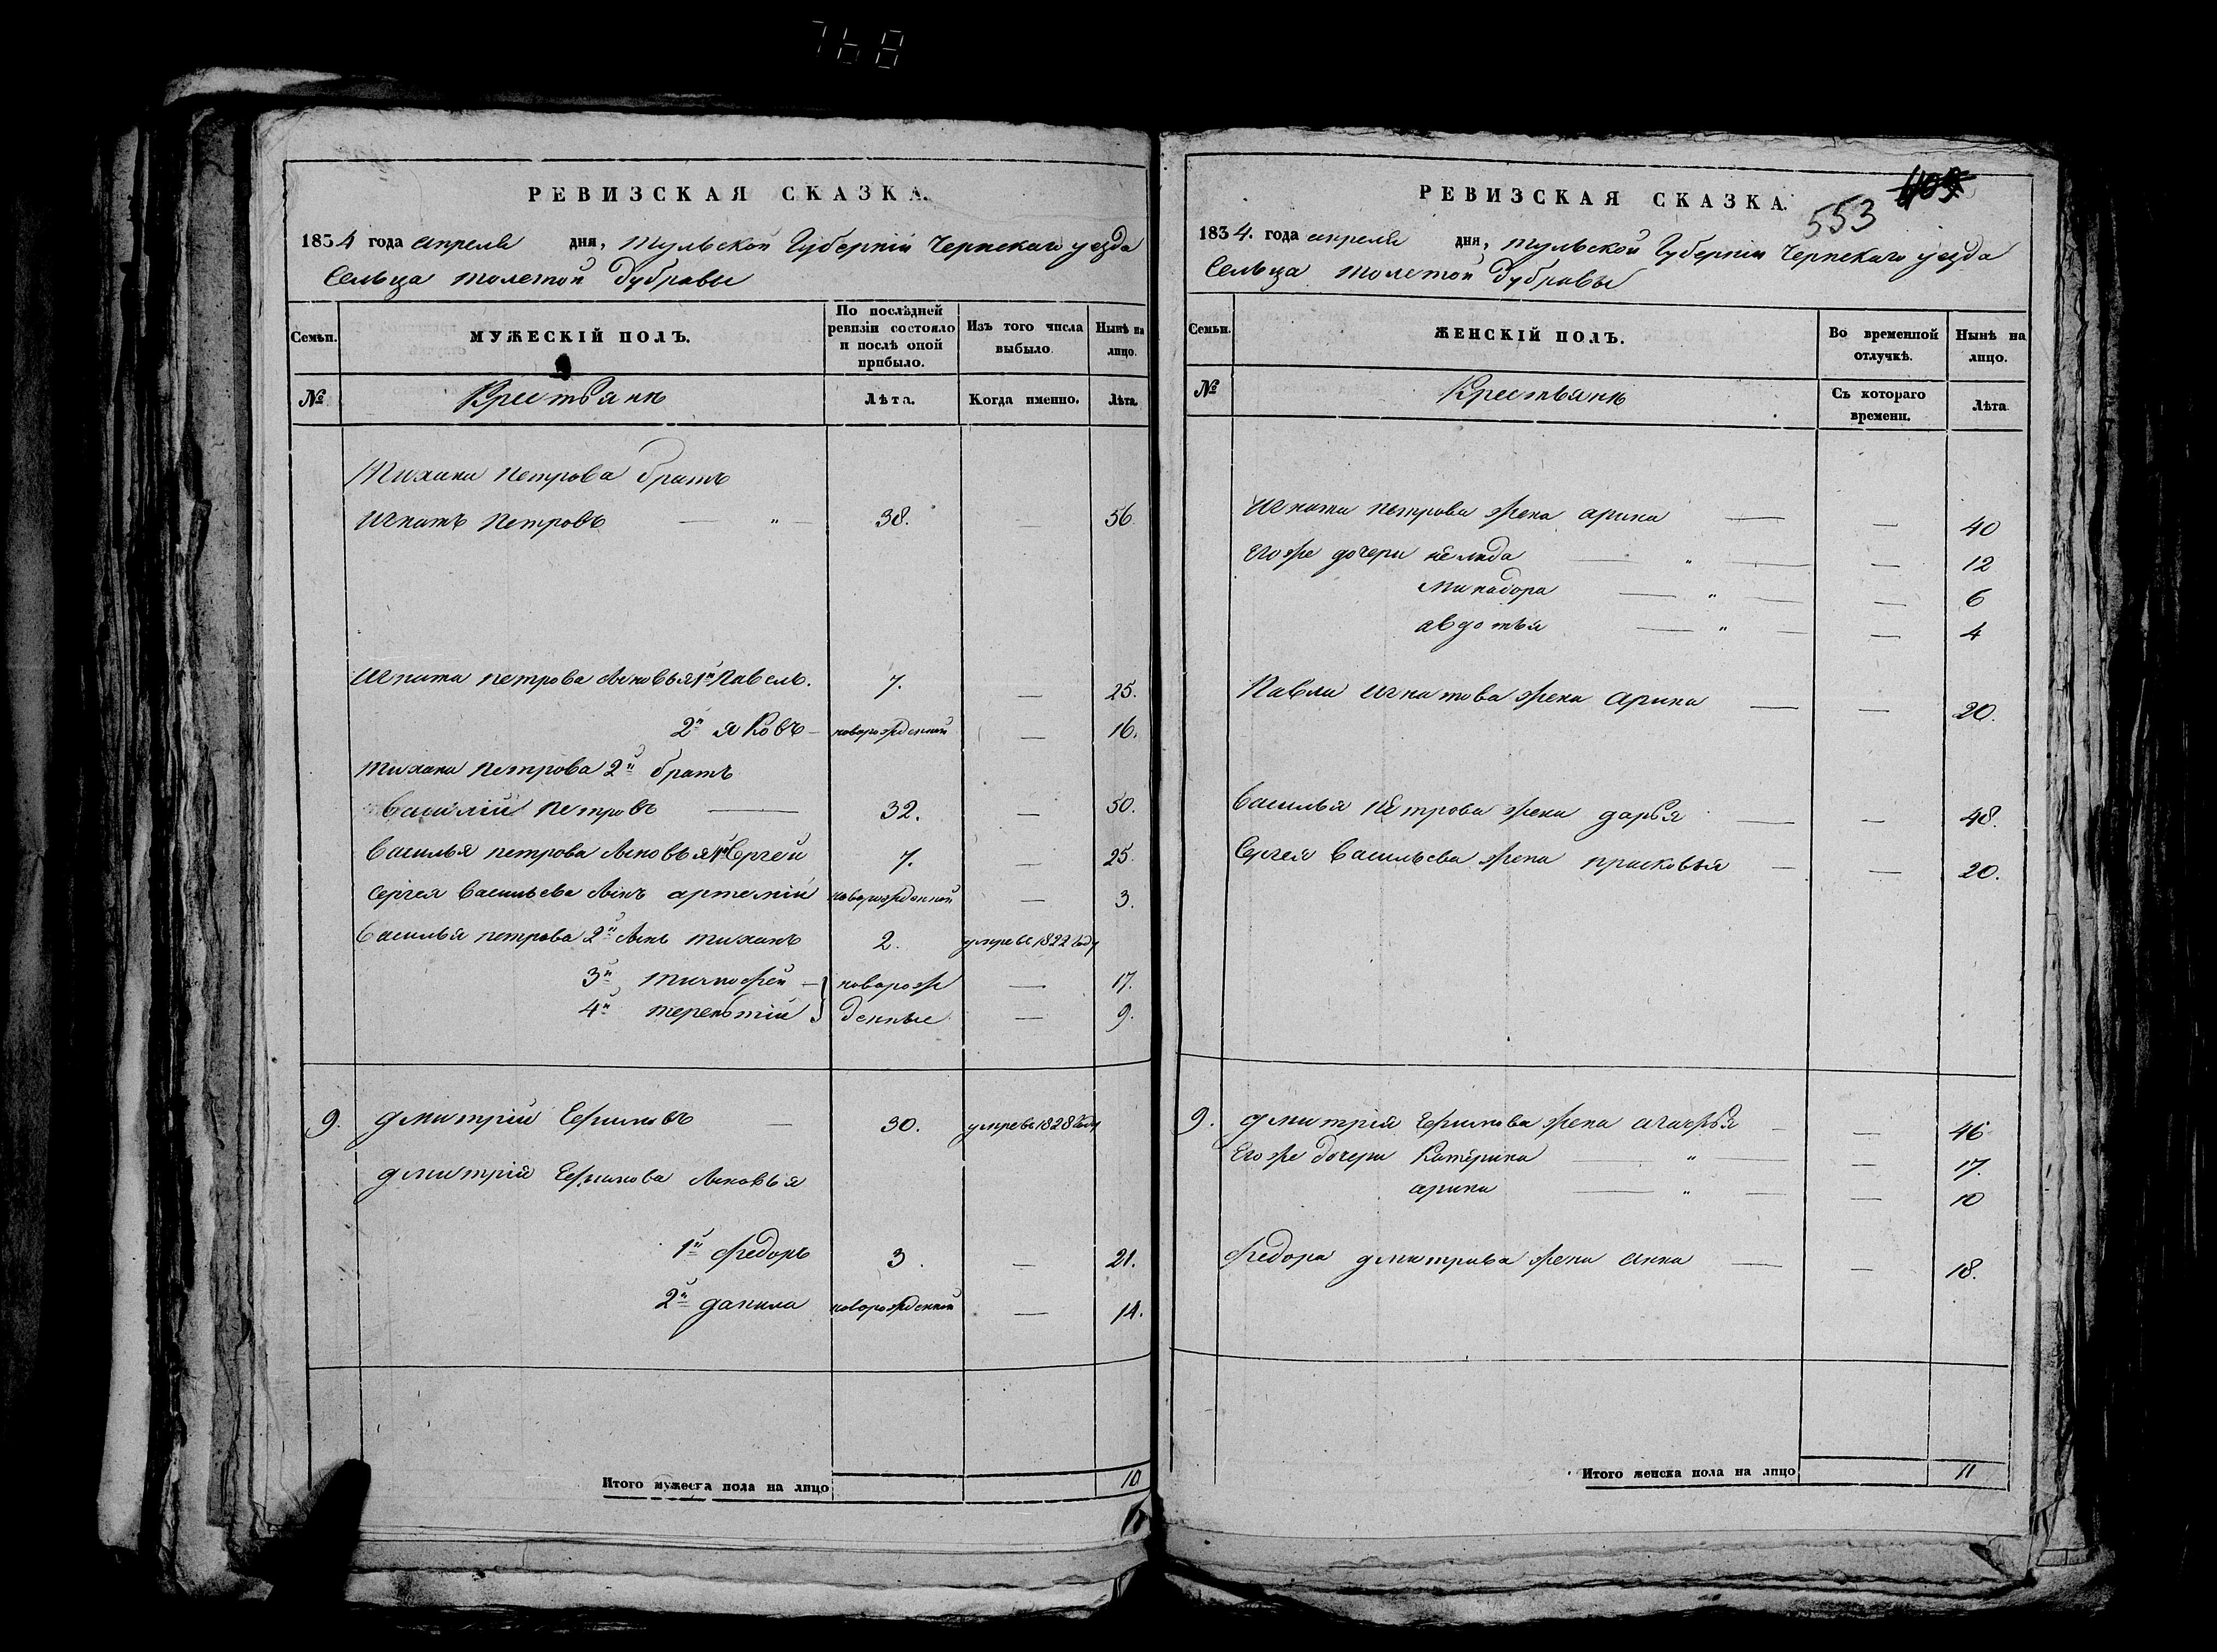 768
РЕВИЗСКАЯ СКАЗКА.
1834 года апреля дня, тульской Губерніи Чернскаго уезда
Сельца толстой дубравы
Семьи.
МУЖЕСКІЙ ПОЛЪ.
По послѣдней ревизіи состояло и послѣ оной прибыло.
Изъ того числа выбыло.
Нынѣ на лицо.
№
Крестьянѣ
Лѣта.
Когда именно.
Лѣта.
Тихана Петрова братъ
Игнатъ Петровъ — " — 38. — 56.
Игната петрова сыновья 1й Павелъ. 7. — 25.
2й яковъ — новорожденной — 16.
Тихана Петрова 2й братъ
Василій Петровъ — 32. — 50.
Василья петрова сыновья 1й Сергей 7. — 25.
Сергея Васильева сынъ артемій новорожденной — 3.
Василья петрова 2й сынъ тиханъ 2. умре въ 1822 году
3й тимофей — } новорож — 17.
4й терентій } денные — 9.
9. дмитрій Ефимовъ — 30. умре въ 1828 году
дмитрія Ефимова сыновья
1й федоръ 3. — 21.
2й данила новорожденной — 14.
Итого мужеска пола на лицо 10
РЕВИЗСКАЯ СКАЗКА.
553
1834. года апреля дня, тульской Губерніи Чернскаго уезда
Сельца толстой дубравы
Семьи.
ЖЕНСКІЙ ПОЛЪ.
Во временной отлучкѣ.
Нынѣ на лицо.
№
Крестьянѣ
Съ котораго времени.
Лѣта.
Игната петрова жена арина — — 40
Егоже дочери — " — — 12
Минадора — " — — 6
авдотья — " — — 4
Павла игнатова жена арина — — 20.
Василья петрова жена дарья — — 48.
Сергея Васильева жена прасковья — — 20.
9. дмитрія Ефимова жена агафья — — 46
Егоже дочери Катерина — " — 17.
арина — " — — 10
федора дмитрива жена анна — — 18.
Итого женска пола на лицо 11